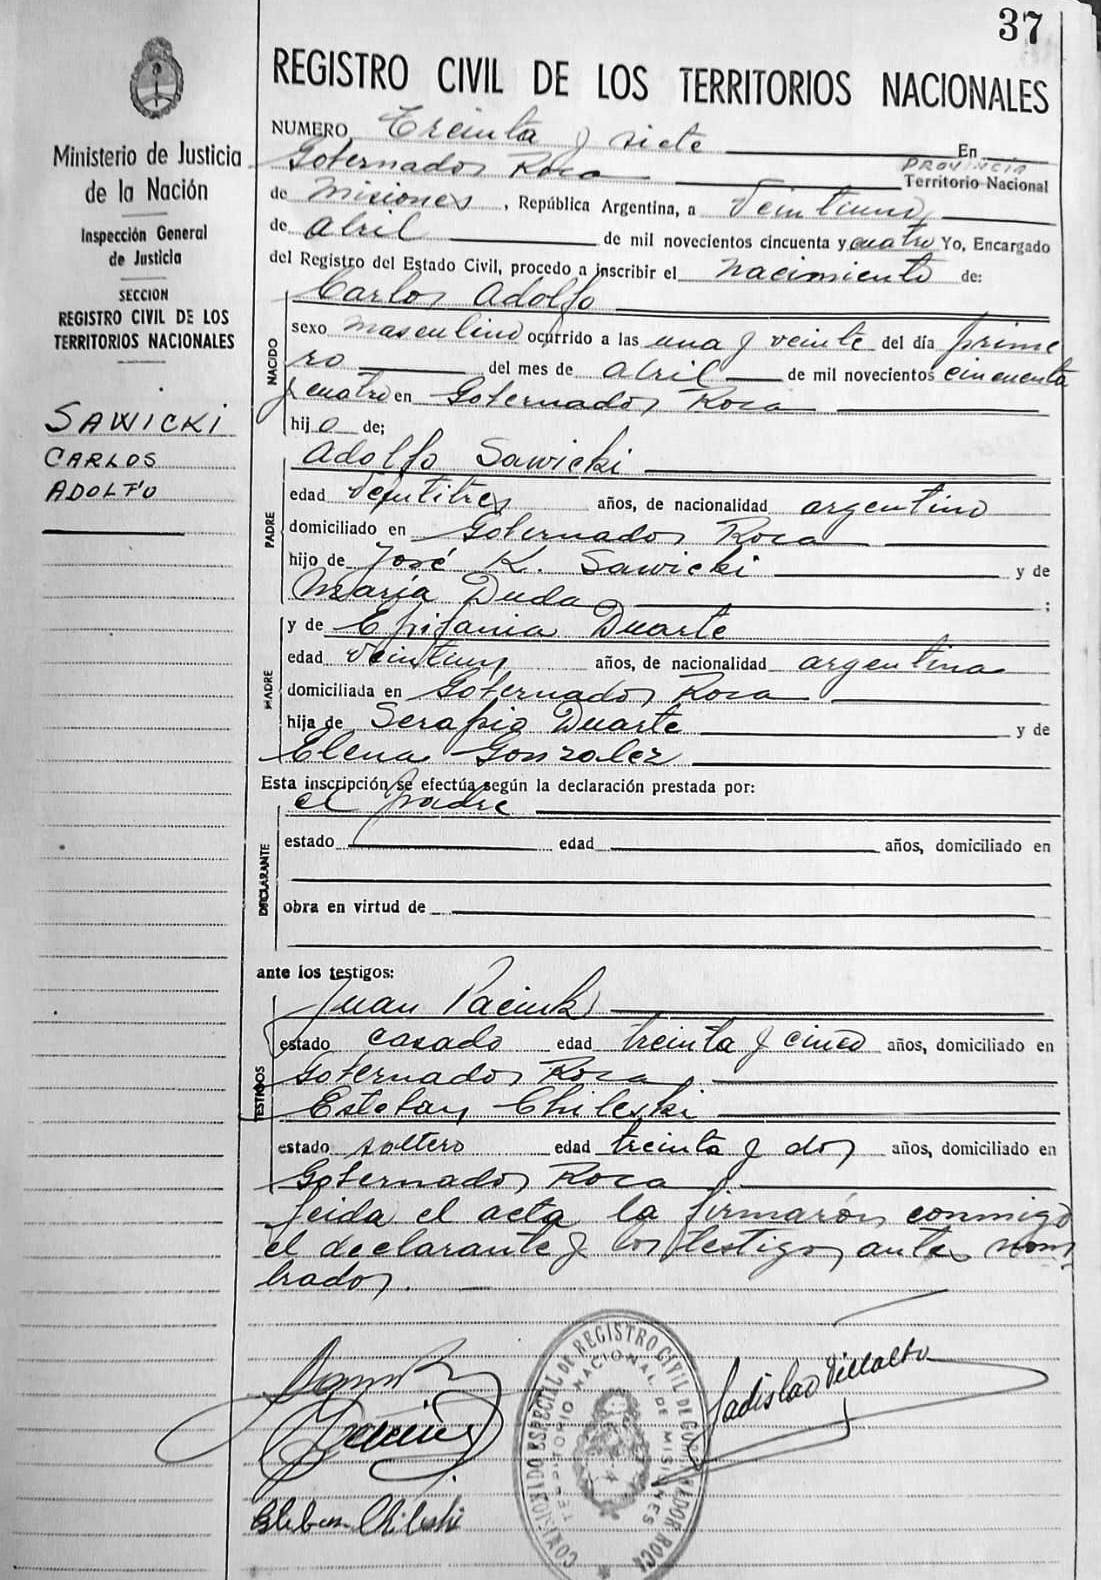 37
Ministerio de Justicia
de la Nación
Inspección General
de Justicia
SECCION
REGISTRO CIVIL DE LOS
TERRITORIOS NACIONALES
SAWICKI
CARLOS
ADOLFO
REGISTRO CIVIL DE LOS TERRITORIOS NACIONALES
NUMERO Treinta y siete En
Gobernador Roca PROVINCIA Territorio Nacional
de Misiones, República Argentina, a veintiuno
de abril de mil novecientos cincuenta y cuatro Yo, Encargado
del Registro del Estado Civil, procedo a inscribir el nacimiento de:
NACIDO
Carlos Adolfo
sexo masculino ocurrido a las una y veinte del día prime
ro del mes de abril de mil novecientos cincuenta
y cuatro en Gobernador Roca
hijo de;
PADRE
Adolfo Sawicki
edad veintitres años, de nacionalidad argentino
domiciliado en Gobernador Roca
hijo de José K. Sawicki y de
María Duda ;
MADRE
y de Epifania Duarte
edad veintiun años, de nacionalidad argentina
domiciliada en Gobernador Roca
hija de Serapio Duarte y de
Elena Gonzalez
Esta inscripción se efectúa según la declaración prestada por:
el padre
DECLARANTE
estado edad años, domiciliado en
obra en virtud de
ante los testigos:
TESTIGOS
Juan
estado casado edad treinta y cinco años, domiciliado en
Gobernador Roca
Esteban Chileski
estado soltero edad treinta y dos años, domiciliado en
Gobernador Roca
Leida el acta la firmaron conmigo
el declarante y los testigos antes nom
brados.
Ladislao Villalba
Esteban Chileski
COMISARIADO ESPECIAL DE REGISTRO CIVIL DE GOBERNADOR ROCA
TERRITORIO NACIONAL DE MISIONES